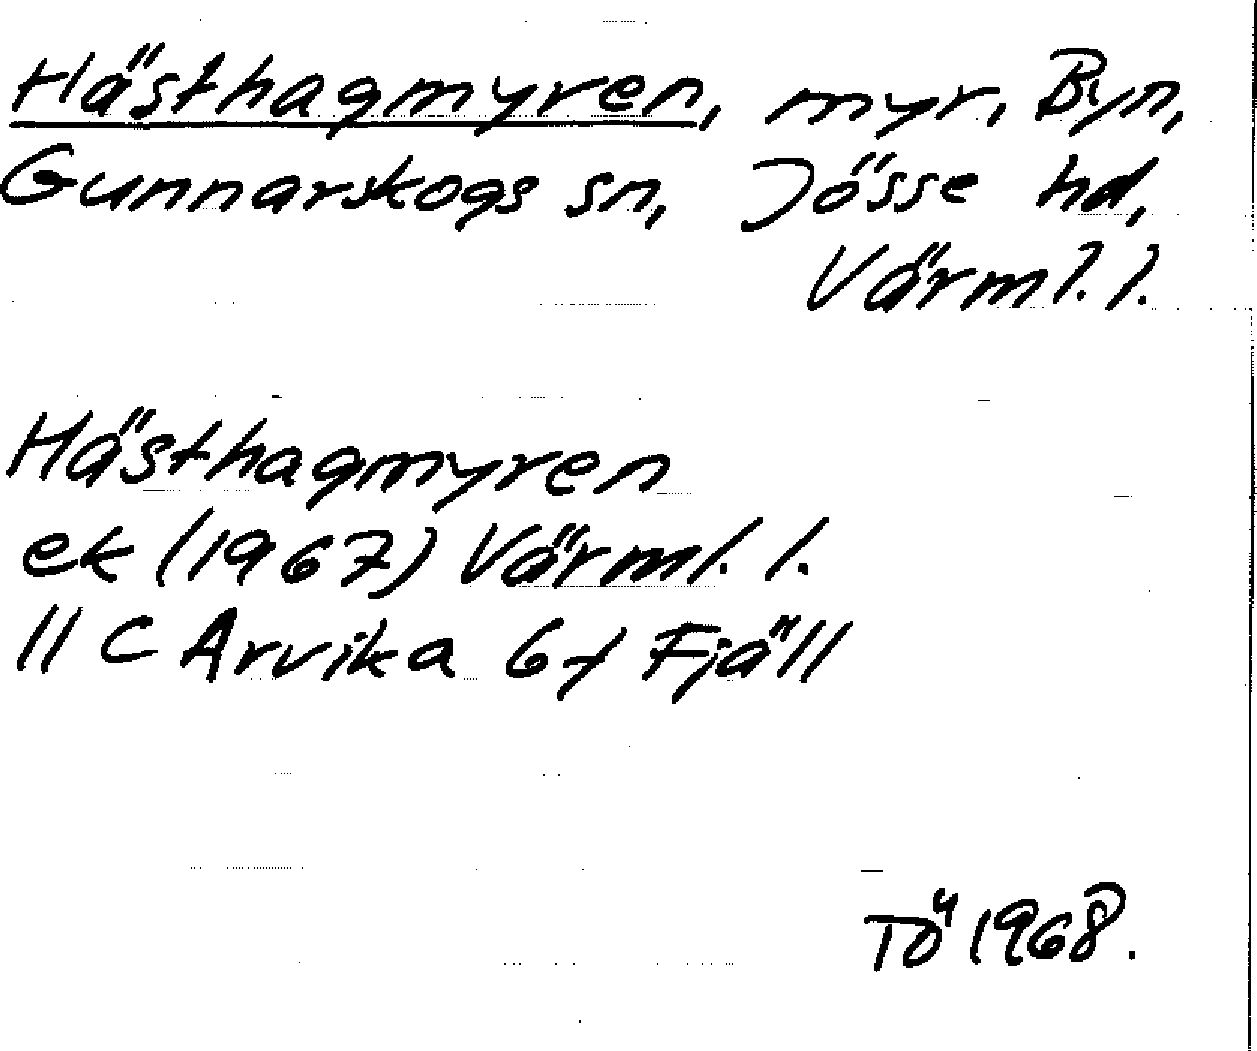 Hästhagmyren, myr, Byn,
Gunnarskogs sn, Jösse hd,
Värml. l.
Hästhagmyren
ek (1967) Värml. l.
11 C Arvika 6f Fjäll
TÖ 1968.